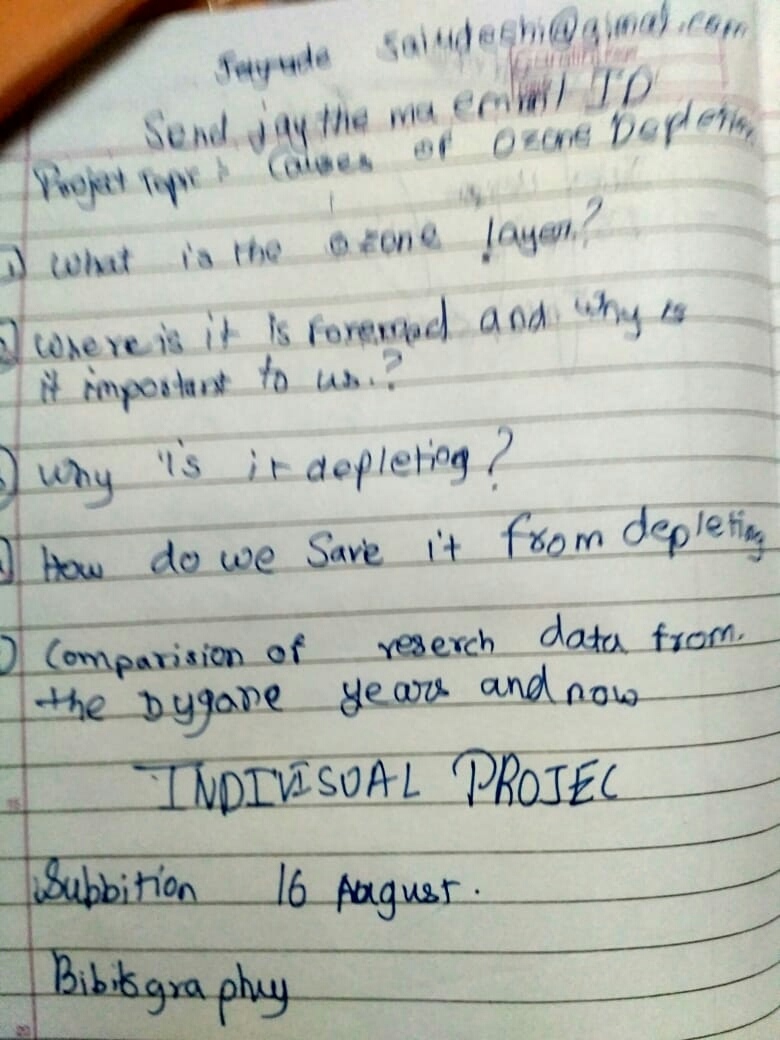 Jayude saiudeshi@gimal.com
Send jay the ma emmil ID
Project Topic : Causes of Ozone Depletion
1) What is the ozone layer?
2) Where is it is foremad and why is
it important to us.?
3) Why is it depleting?
4) How do we Save it from depleting
5) Comparision of reserch data from.
the bygane years and now
INDIVISUAL PROJEC
Subbition 16 August.
Bibitography